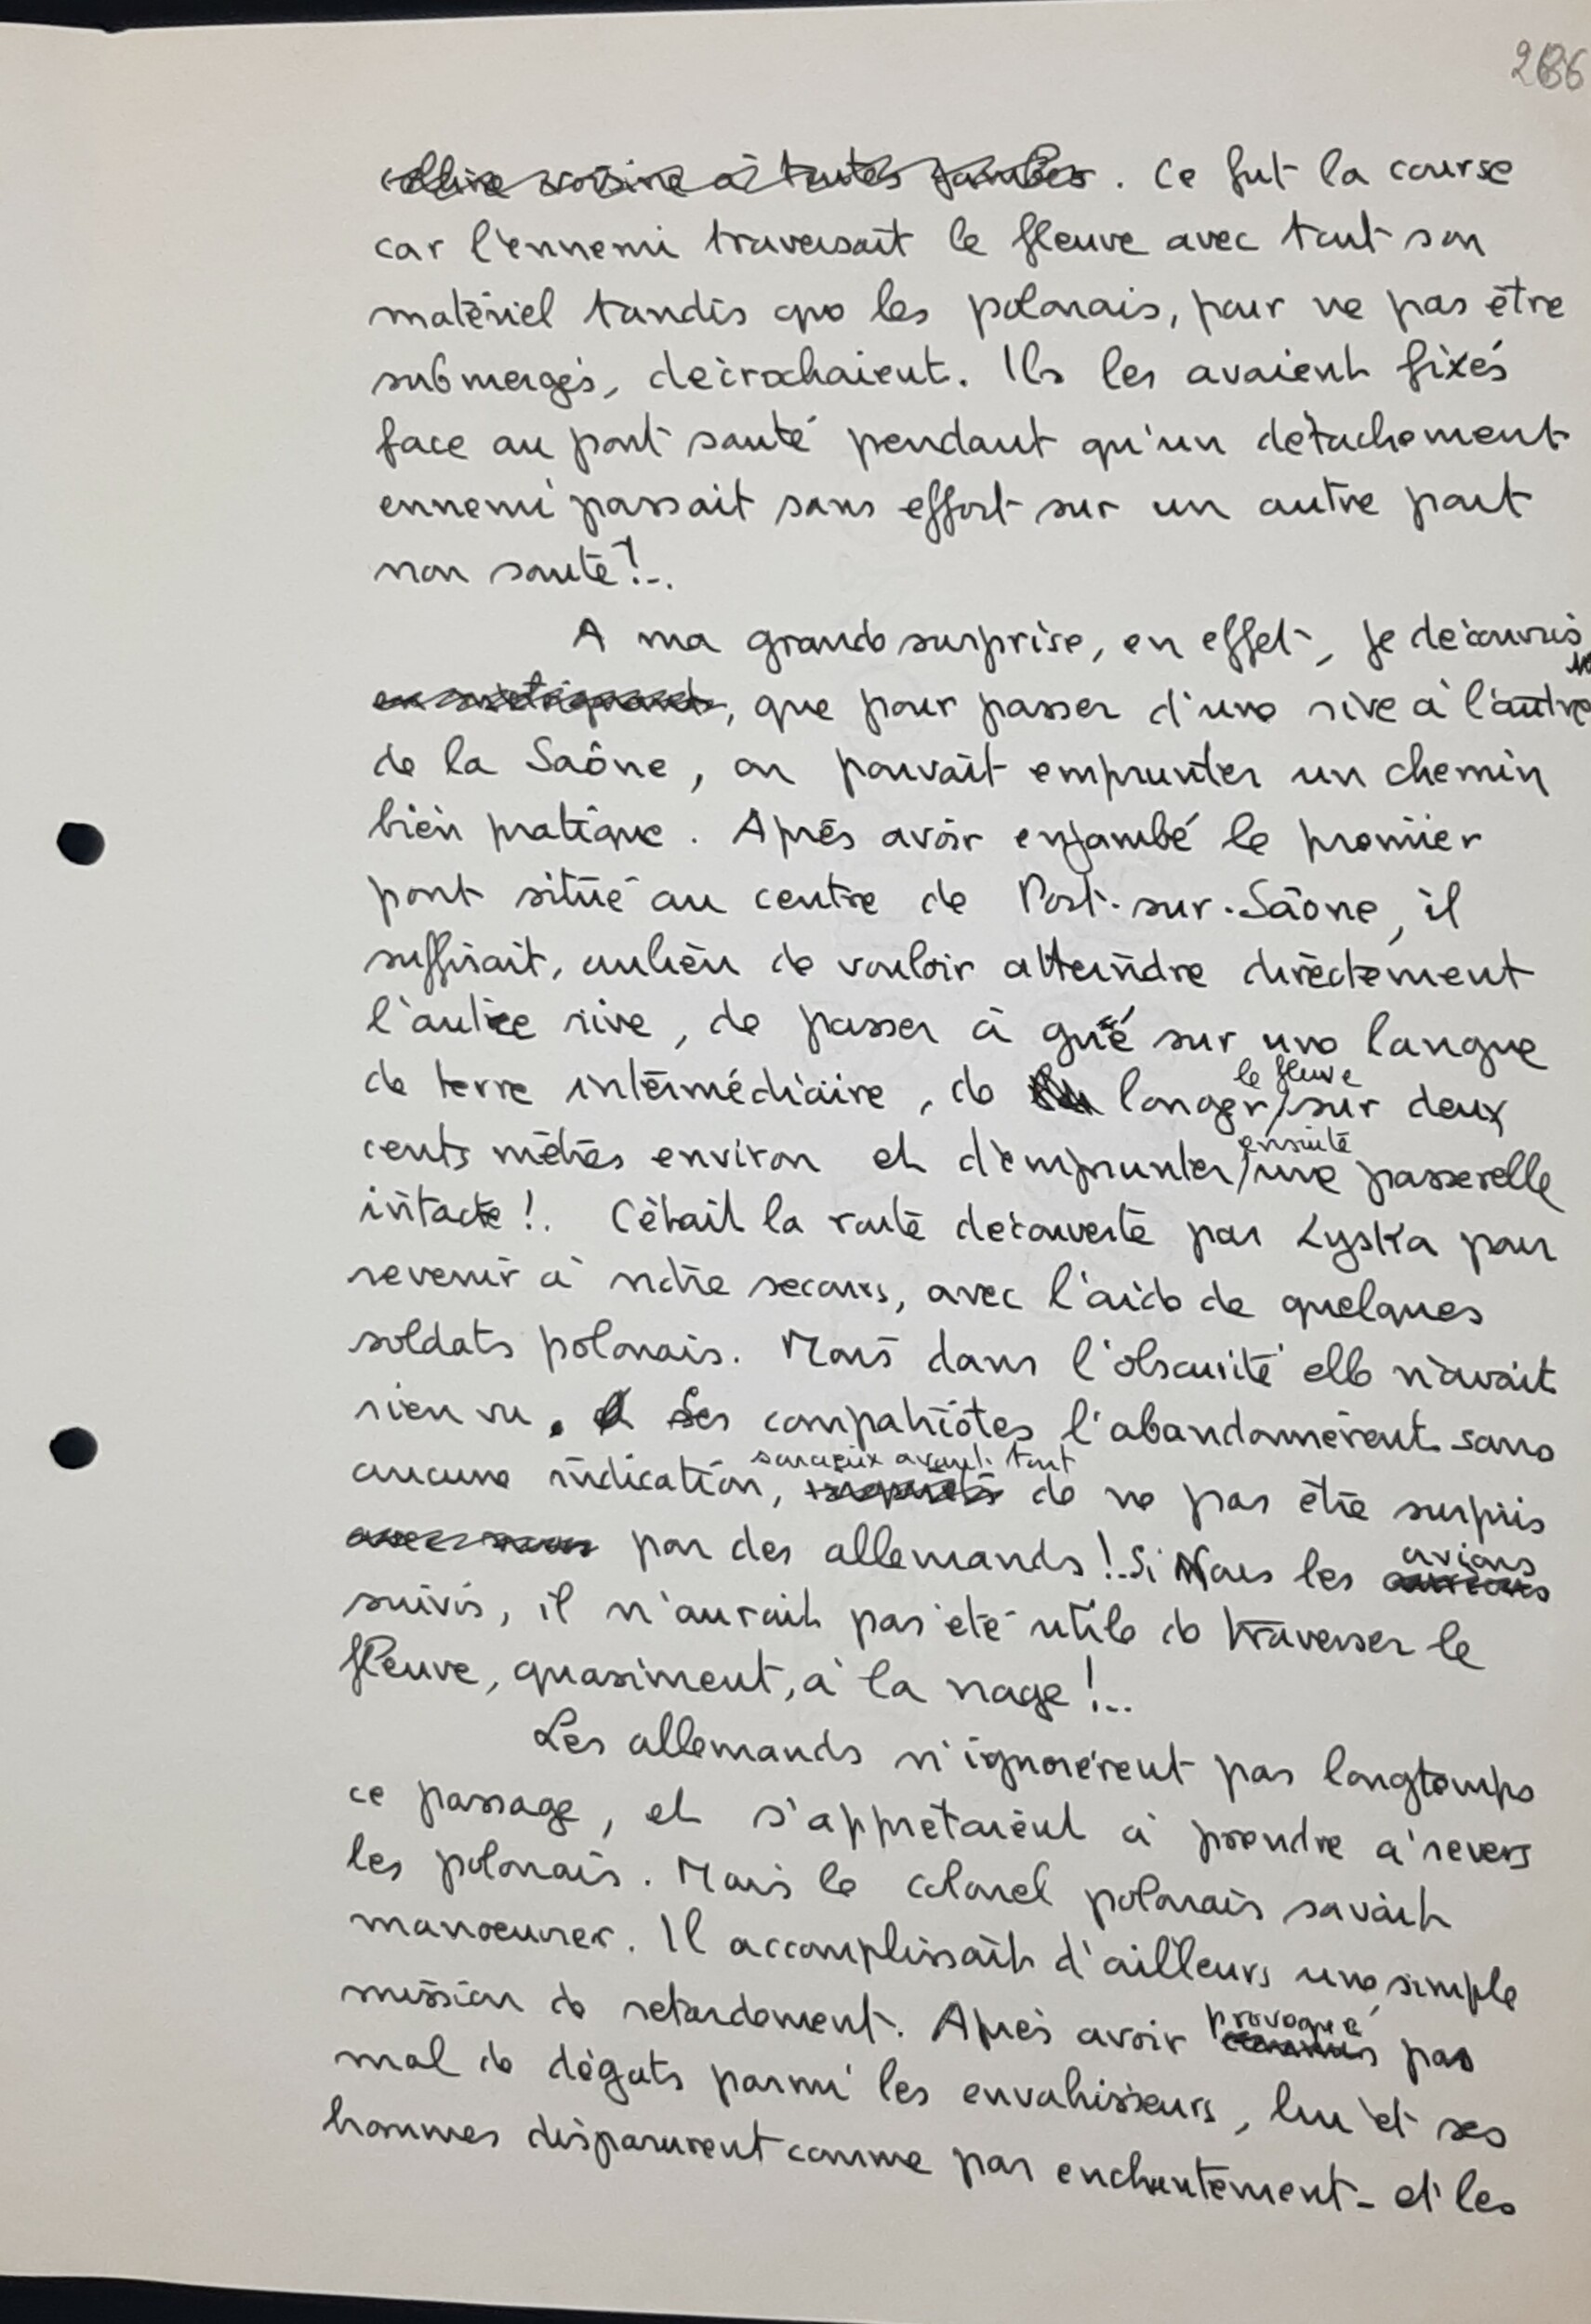 286
colline voisine à toutes jambes. Ce fut la course
car l'ennemi traversait le fleuve avec tout son
matériel tandis que les polonais, pour ne pas être
submergés, décrochaient. Ils les avaient fixés
face au pont sauté pendant qu'un détachement
ennemi passait sans effort sur un autre pont
non sauté!..
A ma grande surprise, en effet, je découvris
, que pour passer d'une rive à l'autre
de la Saône, on pouvait emprunter un chemin
bien pratique. Après avoir enjambé le premier
pont situé au centre de Port-sur-Saône, il
suffisait, aulieu de vouloir atteindre directement
l'autre rive, de passer à gué sur une langue
de terre intermédiaire, de longer le fleuve sur deux
cents mètres environ et d'emprunter ensuite une passerelle
intacte!. C'était la route découverte par Lyska pour
revenir à notre secours, avec l'aide de quelques
soldats polonais. Mais dans l'obscurité elle n'avait
rien vu. Ses compatriotes l'abandonnèrent sans
aucune indication, soucieux avant tout de ne pas être surpris
avec nous par des allemands!. Si Nous les avions
suivis, il n'aurait pas été utile de traverser le
fleuve, quasiment, à la nage!..
Les allemands n'ignorèrent pas longtemps
ce passage, et s'apprêtaient à prendre à revers
les polonais. Mais le colonel polonais savait
manoeuvrer. Il accomplissait d'ailleurs une simple
mission de retardement. Après avoir provoqué pas
mal de dégats parmi les envahisseurs, lui et ses
hommes disparurent comme par enchantement - et les